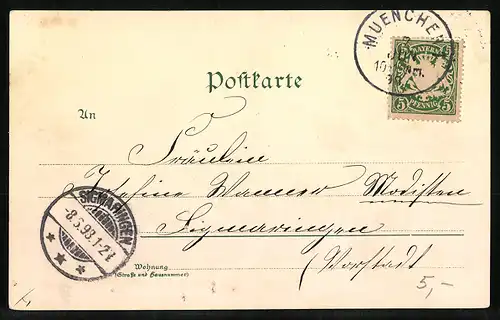 MUENCHEN
BAYERN
5 PFENNIG 5
Postkarte
An
Fräulein
Josefine Wanner Modisten
Sigmaringen
SIGMARINGEN
8.6.98.1-2N
(Vorstadt
Wohnung
(Straße und Hausnummer)
5,-